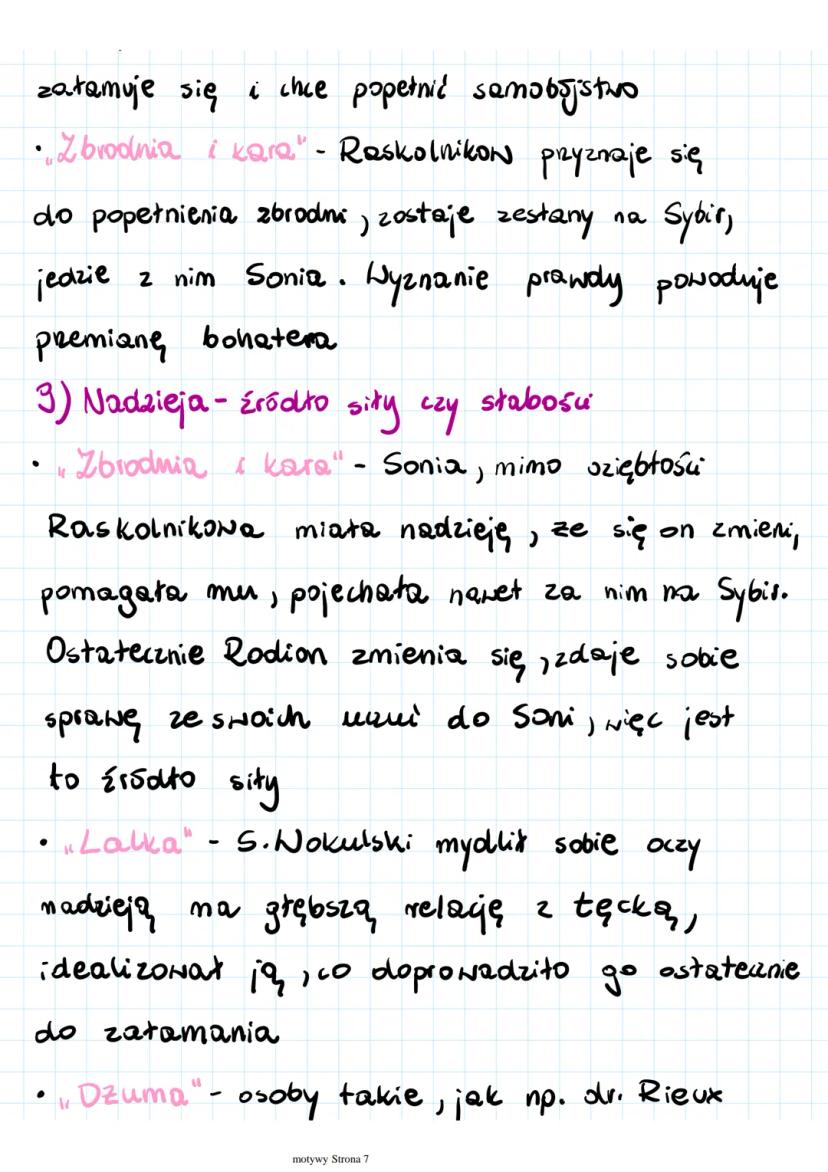 załamuje się i chce popełnić samobójstwo
• „Zbrodnia i kara" - Raskolnikow przyznaje się
do popełnienia zbrodni, zostaje zesłany na Sybir,
jedzie z nim Sonia. Wyznanie prawdy powoduje
przemianę bohatera
9) Nadzieja - źródło siły czy słabości
• „Zbrodnia i kara" - Sonia, mimo oziębłości
Raskolnikowa miała nadzieję, że się on zmieni,
pomagała mu, pojechała nawet za nim na Sybir.
Ostatecznie Rodion zmienia się, zdaje sobie
sprawę ze swoich uczuć do Soni, więc jest
to źródło siły
• „Lalka" - S. Wokulski mydlił sobie oczy
nadzieją na głębszą relację z Łęcką,
idealizował ją, co doprowadziło go ostatecznie
do załamania
• „Dżuma" - osoby takie, jak np. dr. Rieux
motywy Strona 7